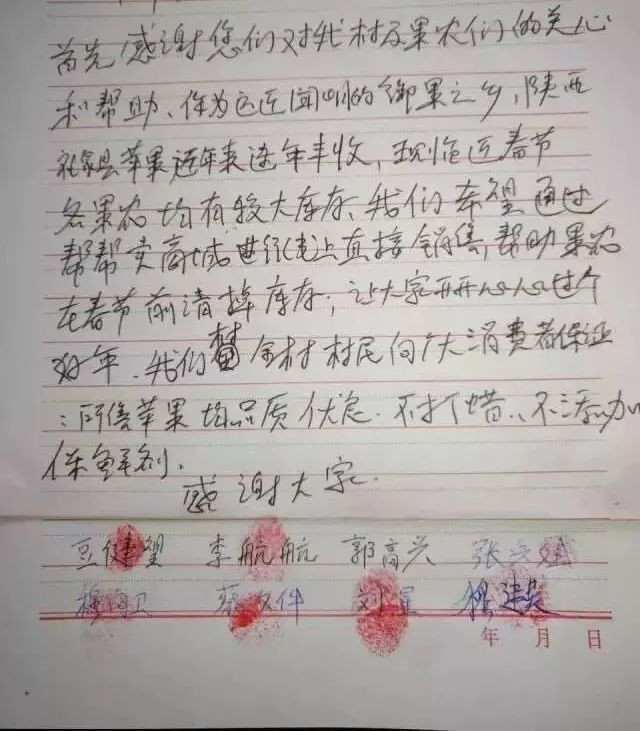 首先感谢您们对我村及果农们的关心
和帮助、作为远近闻名的御果之乡，陕西
县苹果近年来逐年丰收，现临近春节
各果农均有较大库存，我们希望通过
帮帮卖商城进行线上直接销售，帮助果农
在春节前清掉库存；让大家开开心心过个
好年．我们 全村村民向广大消费者保证
：所售苹果均品质优良．不打蜡、不添加
保鲜剂．
感谢大家．
豆健望 李航航 郭高兴 张
蔡 刘星 建
年 月 日